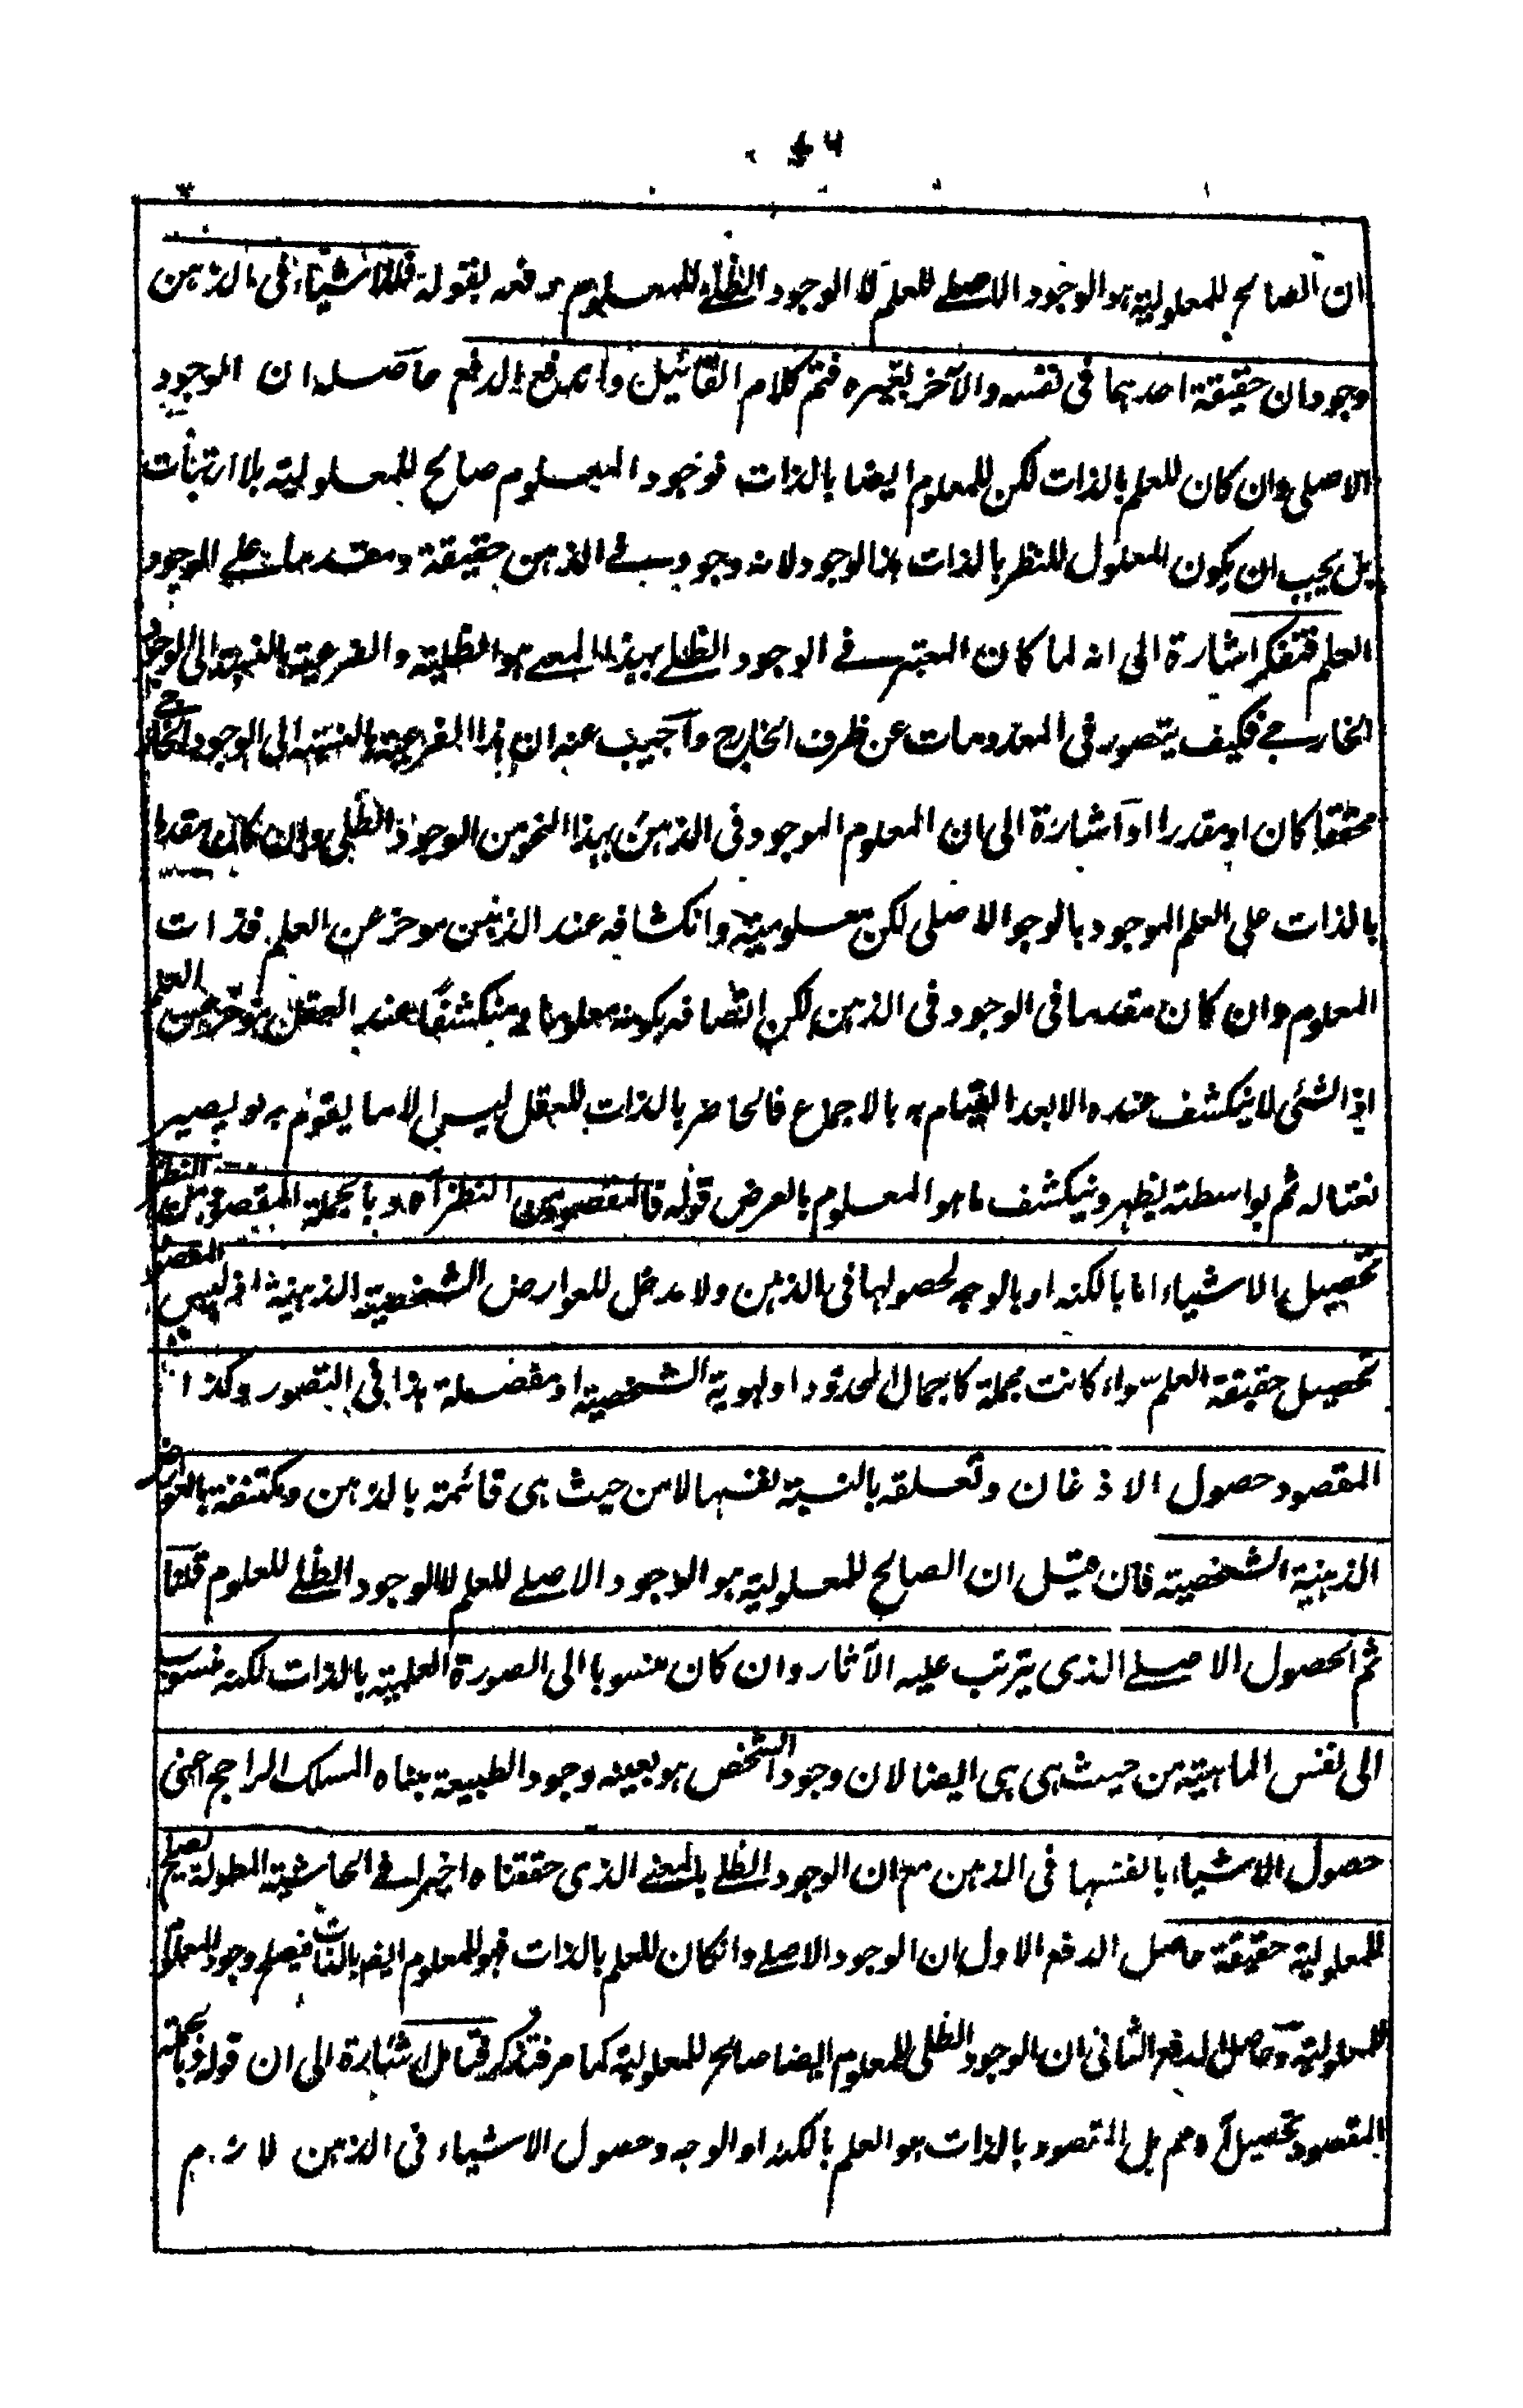 ان الصالح للمعلولية هو الوجود الاصلے للعلم لا الوجود الظلے للمعلوم دفعه بقوله فللاشياء فى الذهن
وجودان حقيقة احدهما فى نفسه والآخر بغيره فتم كلام القائيلن واندفع الدفع حاصله ان الوجود
الاصلى وان كان للعلم بالذات لكن للمعلوم ايضا بالذات فوجود المعلوم صالح للمعلولية بلا ارتياب
بل يجب ان يكون المعلول للنظر بالذات هذا الوجود لانه وجود سے الذهن حقيقة ومقدم علے الوجود
العلم فتفكر اشارة الى انه لما كان المعتبر فے الوجود الظلے بهذا المعنے هو الظلية والفرعية بالنسبة الى الوجود
الخارجے فكيف يتصور فى المعدومات عن ظرف الخارج وآجيب عنه ان هذا الفرعية بالنسبة الى الوجود الخارجے
محققا كان او مقدرا او آشارة الى ان المعلوم الموجود فى الذهن بهذا النحو من الوجود الظلى وان كان مقدما
بالذات على العلم الموجود بالوجو الاصلى لكن معلوميته وانكشافه عند الذهن موخر عن العلم فذات
المعلوم وان كان مقدما فى الوجود فى الذهن لكن اتصافه بكونه معلوما و منكشفا عند العقل موخر عن العلم
اذ الشئى لا ينكشف عنده الا بعد القيام به بالاجماع فالحاضر بالذات للعقل ليس الا ما يقوم به و يصير
نعتا له ثم بواسطته يظهر وينكشف ما هو المعلوم بالعرض قوله فالمقصود من النظر آه وبالجملة المقصود من النظر
تحصيل الاشياء اما بالكنه او بالوجه لحصولها فى الذهن ولا مدخل للعوارض الشخصية الذهنية اذ ليس المقصود
تحصيل حقيقة العلم سواء كانت مجملة كاجمال المحدود او لهوية الشخصية او مفصلة هذا فى التصور وكذا
المقصود حصول الاذعان وتعلقه بالنسبة نفسها لا من حيث هى قائمة بالذهن ومكتنفة بالعوارض
الذهنية الشخصية فان قيل ان الصالح للمعلولية هو الوجود الاصلے للعلم لا الوجود الظلے للمعلوم قلنا
ثم الحصول الاصلے الذى يترتب عليه الآثار وان كان منسوبا الى الصورة العلمية بالذات لكنه منسوب
الى نفس الماهية من حيث هى هى ايضا لان وجود الشخص هو بعينه وجود الطبيعة بناه المسلك الراجح اعنى
حصول الاشياء بانفسها فى الذهن مع ان الوجود الظلے بالمعنے الذى حققناه اخيرا فے الحاشية المطولة يصلح
للمعلولية حقيقة حاصل الدفع الاول ان الوجود الاصلے وانكان للعلم بالذات فهو للمعلوم ايضا بالذات فيصلح وجود المعلوم
للمعلولية وحاصل الدفع الثانى ان الوجود الظلى للمعلوم ايضا صالح للمعلولية كما مر فتذكر فتامل اشارة الى ان قوله وبالجملة
المقصود تحصيل آه مم بل المقصود بالذات هو العلم بالكنه او الوجه وحصول الاشياء فى الذهن لازم